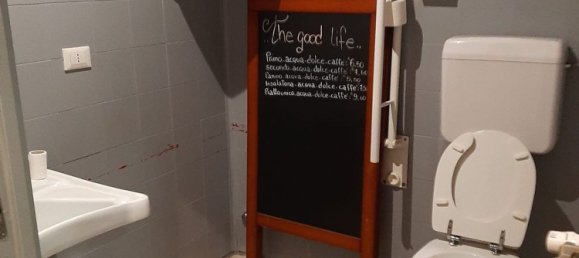 ..The good life..
Primo.acqua.dolce.caffe':6,50
secondo.acqua.dolce.caffe':
Panino.acqua.dolce.caffe':5,00
Insalatona.acqua.dolce.caffe':
Piattounico.acqua.dolce.caffe':9,00